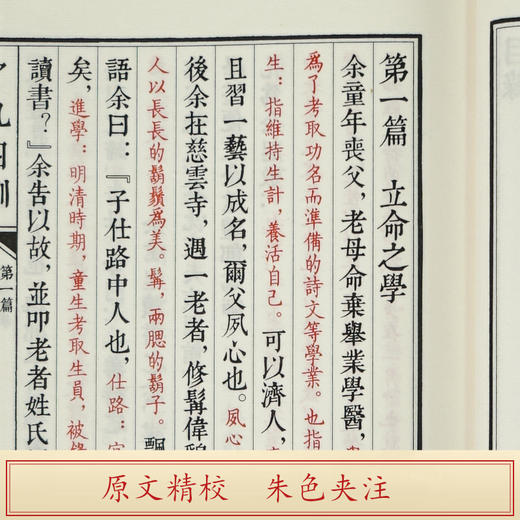 第一篇　立命之學
余童年喪父，老母命棄舉業學醫，
為了考取功名而準備的詩文等學業。也指
生：指維持生計，養活自己。可以濟人，
且習一藝以成名，爾父夙心也。夙心
後余在慈雲寺，遇一老者，修髯偉貌
人以長長的鬍鬚為美。髯，兩腮的鬍子。飄
語余曰：『子仕路中人也，仕路：
矣，進學：明清時期，童生考取生員，被
讀書？』余告以故，並叩老者姓氏
凡四訓
第一篇
原文精校　朱色夹注